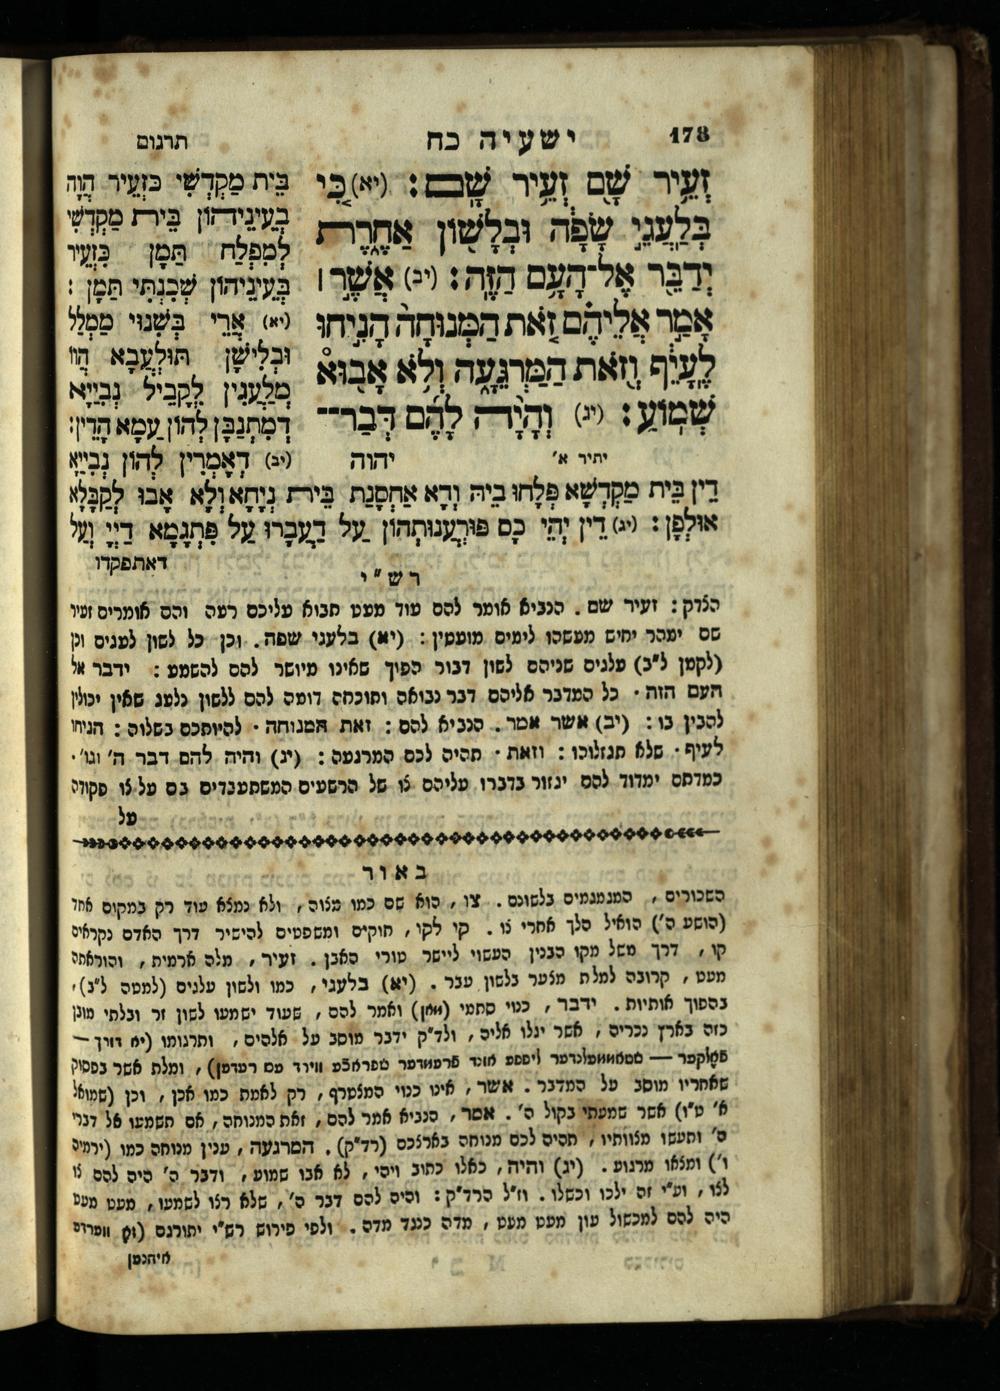 178
ישעיה כח
תרגום
זְעֵ֥יר שָׁ֖ם זְעֵ֥יר שָֽׁם׃ (יא) כִּ֚י
בְּלַעֲגֵ֣י שָׂפָ֔ה וּבְלָשׁ֖וֹן אַחֶ֑רֶת
יְדַבֵּ֖ר אֶל־הָעָ֥ם הַזֶּֽה׃ (יב) אֲשֶׁ֣ר ׀
אָמַ֣ר אֲלֵיהֶ֗ם זֹ֤את הַמְּנוּחָה֙ הָנִ֣יחוּ
לֶֽעָיֵ֔ף וְזֹ֖את הַמַּרְגֵּעָ֑ה וְלֹ֥א אָב֖וּא
שְׁמֽוֹעַ׃ (יג) וְהָיָ֨ה לָהֶ֜ם דְּבַר־
יתיר א'
יהוה
בֵּית מַקְדְּשִׁי כִּזְעֵיר הֲוָה
בְעֵינֵיהוֹן בֵּית מַקְדְּשִׁי
לְמִפְלַח תַּמָּן כִּזְעֵיר
בְּעֵינֵיהוֹן שְׁכִנְתִּי תַּמָּן :
(יא) אֲרֵי בְּשִׁנוּי מַמְלַל
וּבְלִישָׁן תּוּלְעֲבָא הֲווֹ
מַלְעֲגִין לָקֳבֵיל נְבִיַּיָּא
דְּמִתְנַבָּן לְהוֹן עַמָּא הָדֵין :
(יב) דְאָמְרִין לְהוֹן נְבִיַּיָּא
דֵּין בֵּית מַקְדְּשָׁא פְּלָחוּ בֵיהּ וְדָא אַחְסָנַת בֵּית נְיָחָא וְלָא אָבוּ לְקַבָּלָא
אוּלְפָן : (יג) דֵּין יְהֵי כָּס פּוּרְעֲנוּתְהוֹן עַל דַּעֲבָרוּ עַל פִּתְגָמָא דַיְיָ וְעַל
דאתפקדו
רש"י
הצדק : זעיר שם . הנביא אומר להם עוד מעט תבוא עליכם רעה והם אומרים זעיר
שם ימהר יחיש מעשהו לימים מועטין : (יא) בלעגי שפה . וכן כל לשון לעגים וכן
(לקמן ל"ב) עלגים שניהם לשון דבור הפוך שאינו מיושר להם להשמע : ידבר אל
העם הזה · כל המדבר אליהם דבר נבואה ותוכחה דומה להם ללשון נלעג שאין יכולין
להבין בו : (יב) אשר אמר . הנביא להם : זאת המנוחה · להיותכם בשלוה : הניחו
לעיף · שלא תגזלוהו : וזאת · תהיה לכם המרגעה : (יג) והיה להם דבר ה' וגו' ·
כמדתם ימדוד להם יגזור בדברו עליהם צו של הרשעים המשתעבדים בם על צו פקודה
על
באור
השכורים , המגמגמים בלשונם . צו , הוא שם כמו מצוה , ולא נמצא עוד רק במקום אחד
(הושע ה') הואיל הלך אחרי צו . קו לקו , חוקים ומשפטים להישיר דרך האדם נקראים
קו , דרך משל מקו הבנין העשוי ליישר טורי האבן . זעיר , מלה ארמית , והוראתה
מעט , קרובה למלת מצער בלשון עבר . (יא) בלעגי , כמו ולשון עלגים (למטה ל"ב) ,
בהפוך אותיות . ידבר , כנוי סתמי (מאן) ואמר להם , שעוד ישמעו לשון זר ובלתי מובן
כזה בארץ נכריה , אשר יגלו אליה , ולד"ק ידבר מוסב על אלהים , ותרגומו (יא דורך —
פאָלקער — שטאממעלנדער ליפפע אונד פרעמדער שפראכע ווירד עם רעדען) , ומלת אשר בפסוק
שאחריו מוסב על המדבר . אשר , אינו כנוי המצטרף , רק לאמת כמו אכן , וכן (שמואל
א' ט"ו) אשר שמעתי בקול ה' . אמר , הנביא אמר להם , זאת המנוחה , אם תשמעו אל דברי
ה' ותעשו מצוותיו , תהיה לכם מנוחה בארצכם (רד"ק) . המרגעה , ענין מנוחה כמו (ירמיה
ו') ומצאו מרגוע . (יג) והיה , כאלו כתוב ויהי , לא אבו שמוע , ודבר ה' היה להם צו
לצו , וע"י זה ילכו וכשלו . וז"ל הרד"ק : והיה להם דבר ה' , שלא רצו לשמעו , מעט מעט
היה להם למכשול עון מעט מעט , מדה כנגד מדה . ולפי פירוש רש"י יתורגם (זאָ ווירד
איהנען